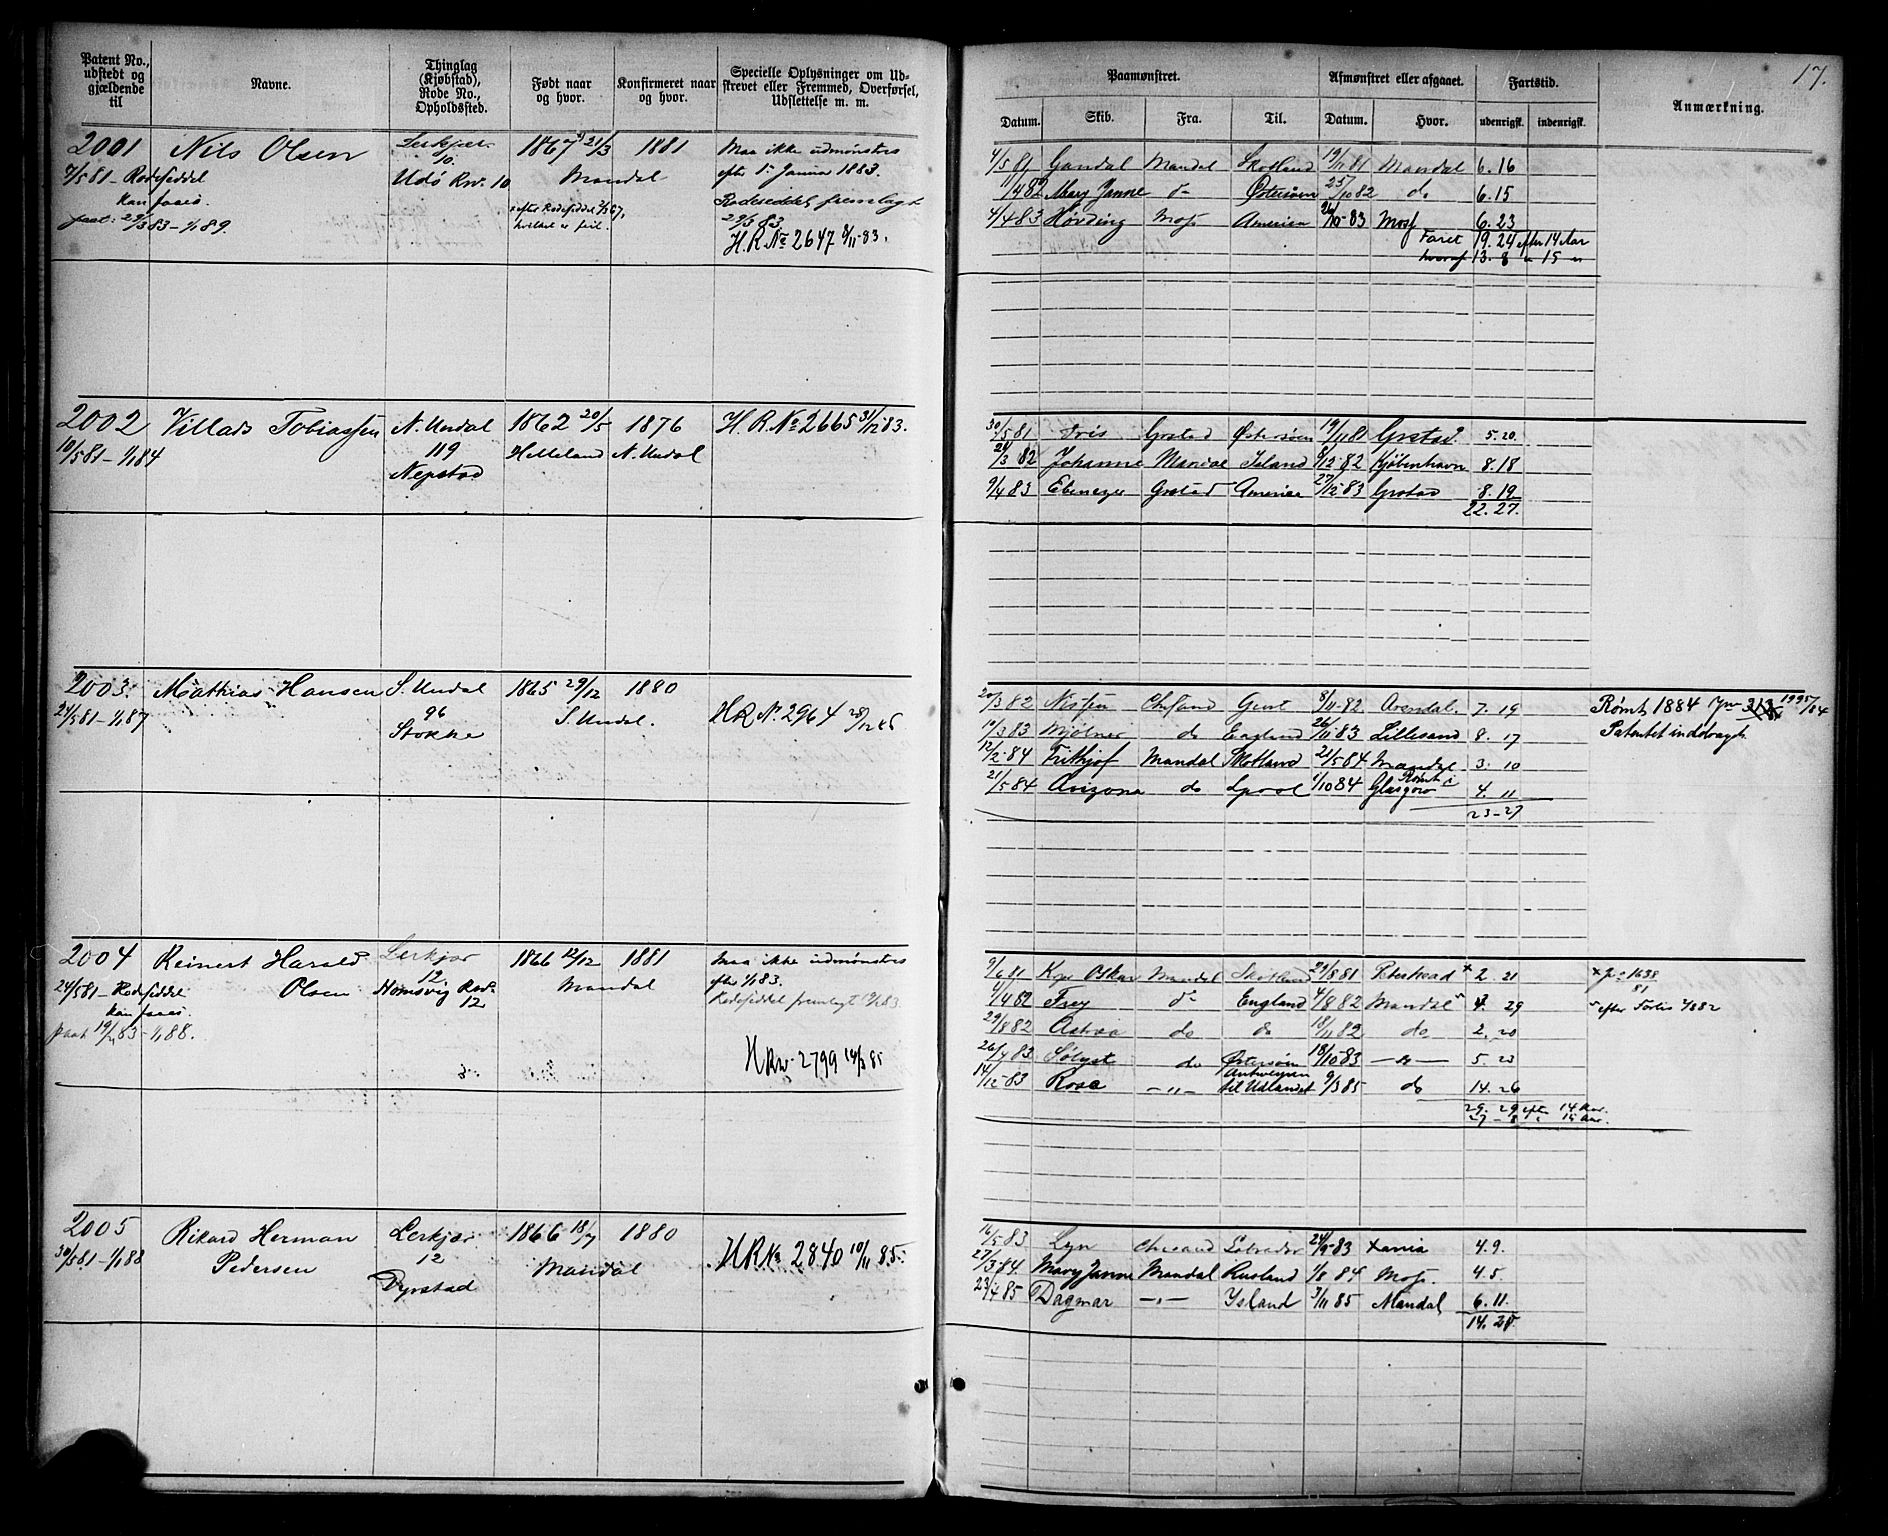 17.
Patent No., udstedt og gjældende til
Navne.
Thinglag (Kjøbstad), Rode No., Opholdssted.
Født naar og hvor.
Konfirmeret naar og hvor.
Specielle Oplysninger om Udskrevet eller Fremmed, Overførsel, Udslettelse m. m.
Paamønstret.
Afmønstret eller afgaaet.
Fartstid.
Anmærkning.
Datum. Skib. Fra. Til. Datum. Hvor. udenrigsk. indenrigsk.
2001 Nils Olsen 1867 21/3 1881 Maa ikke udmønstres
7/5 81 – Rodeseddel Udö Rod. 10 Mandal efter 1ste Januar 1883.
kan faaes. efter Rodeseddel Rodeseddel fremlagt
29/3 83 – 1/1 89. hvilket er feil. 29/3 83.
H.R. No 2647 8/11 83.
4/5 81 Gandal Mandal Skotland 19/11 81 Mandal 6. 16
11/4 82 Mary Janne do Østersøen 25/10 82 do 6. 15
4/4 83 Høvding Moss America 83 Moss 6. 23
Faret 19. 24 efter 14 Aar
hvoraf 13. 8 " 15 "
2002 Villads Tobiassen N. Undal 1862 20/5 1876 H.R. No 2665 31/12 83.
10/5 81 – 1/1 84 119 Helleland N. Undal
30/5 81 Iris Grstad Østersøen 19/11 81 Grstad. 5. 20
82 Johanne Island 8/12 82 Kjøbenhavn 8. 18
9/4 83 Ebenezer Grstad America 27/12 83 Grstad 8. 19
22. 27.
2003. Mathias Hansen S. Undal 1865 29/12 1880
24/5 81 – 1/1 87 96 S. Undal. H R No. 2964
Stokke
20/3 82 Chrsand 8/11 82 Arendal. 7. 19 Rømt 1884
10/3 83 Mjølner do England 26/11 83 Lillesand 8. 17 Patentet inddraget.
12/2 84 Frithjof Mandal Skotland 21/5 84 Mandal 3. 10
21/5 84 Arizona do Lpool 1/10 84 Rømt i Glasgow 4. 11
23 – 27
2004 Reinert Harald Olsen 1866 12/12 1881 Maa ikke udmønstres
24/5 81 – Rodeseddel 12 Mandal efter 1/1 83.
kan faaes. Homsvig Rod. 12 Rodeseddel fremlagt
19/2 83 – 1/1 88.
2799 14/3 85
9/6 81 Oskar Mandal Skotland 29/8 81 2. 21
1/4 82 Frey do England 4/8 82 Mandal 4. 29
29/8 82 Astrea do do 18/11 82 do 2. 20
26/4 83 do Østersøen 18/10 83 – do – 5. 23
14/12 83 Rosa – " – Antwerpen til Udlandet 9/3 85 do 14. 26
29. 29 efter 14 Aar.
27 – 8 " 15 Aar.
2005 Rikard Herman Pedersen Lerkjær 1866 18/7 1880
30/5 81 – 1/1 88 12 Mandal H R No 2840 10/11 85.
Dyrstad
16/5 83 Lyn Chrsand Labrador 24/9 83 Xania 4. 9.
27/3 84 Mary Janne Mandal Rusland 1/8 84 Moss. 4. 5.
23/4 85 Dagmar – " – Island 3/11 85 Mandal 6. 11.